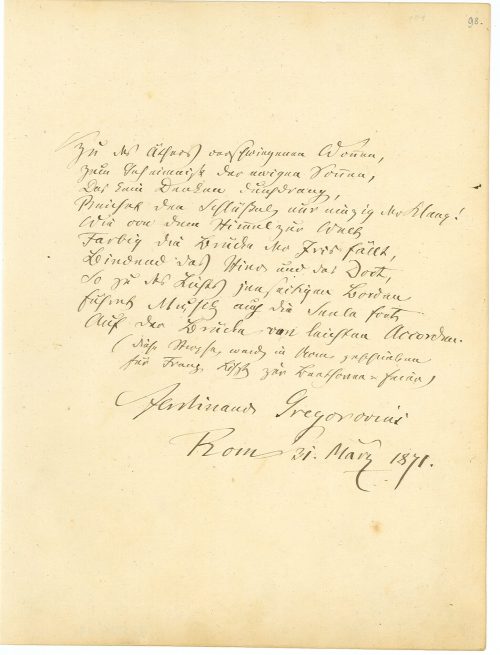 98.
Zu des Äthers verschwiegenen Wonnen,
Zum Geheimniß der ewigen Sonnen,
Das kein Denken durchdrang,
Reichet den Schlüssel nur einzig der Klang!
Wie von dem Himmel zur Welt
Farbig die Brücke der Iris fällt,
Bindend das Hier und das Dort,
So zu des Lichts jenseitigen Borden
Führet Musik auch die Seele fort
Auf der Brücke von leichten Accorden.
(diese Strophe, ward in Rom geschrieben
für Franz Liszt zur Beethoven-feier)
Ferdinand Gregorovius
Rom 31. März 1871.